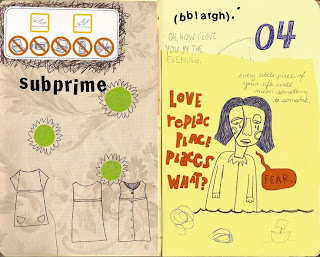 subprime
(bblargh).
04
OH, HOW I LOVE
YOU IN THE
EVENING.
every little piece of
your life will
mean something
to someone.
LOVE
replac
PLACE
PLACES
WHAT?
FEAR.